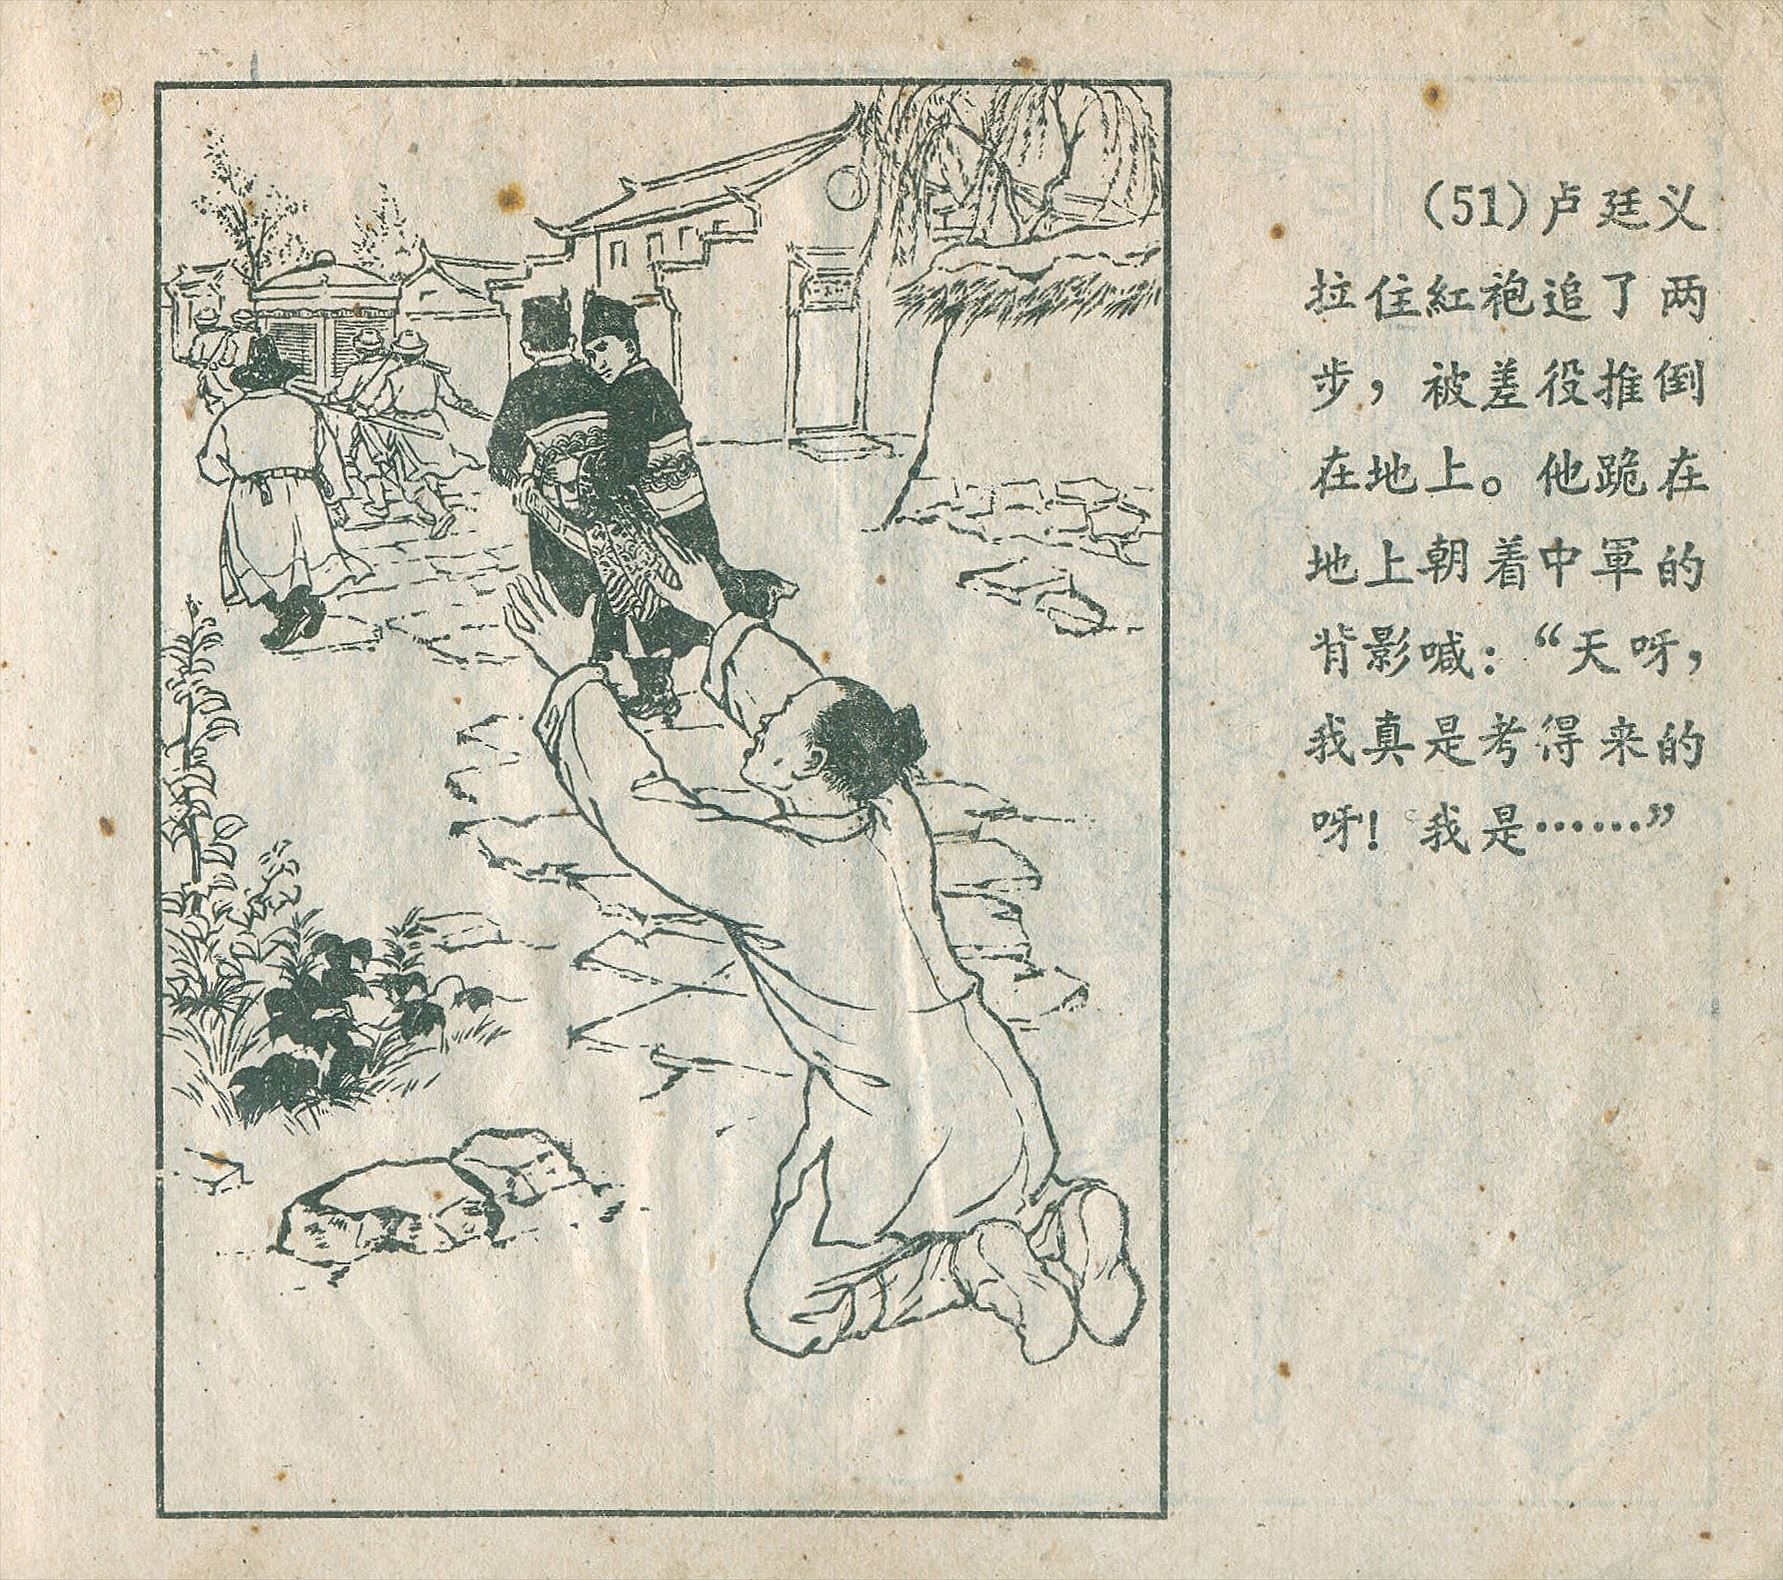 (51)卢廷义
拉住紅袍追了两
步，被差役推倒
在地上。他跪在
地上朝着中軍的
背影喊：“天呀，
我真是考得来的
呀！我是……”